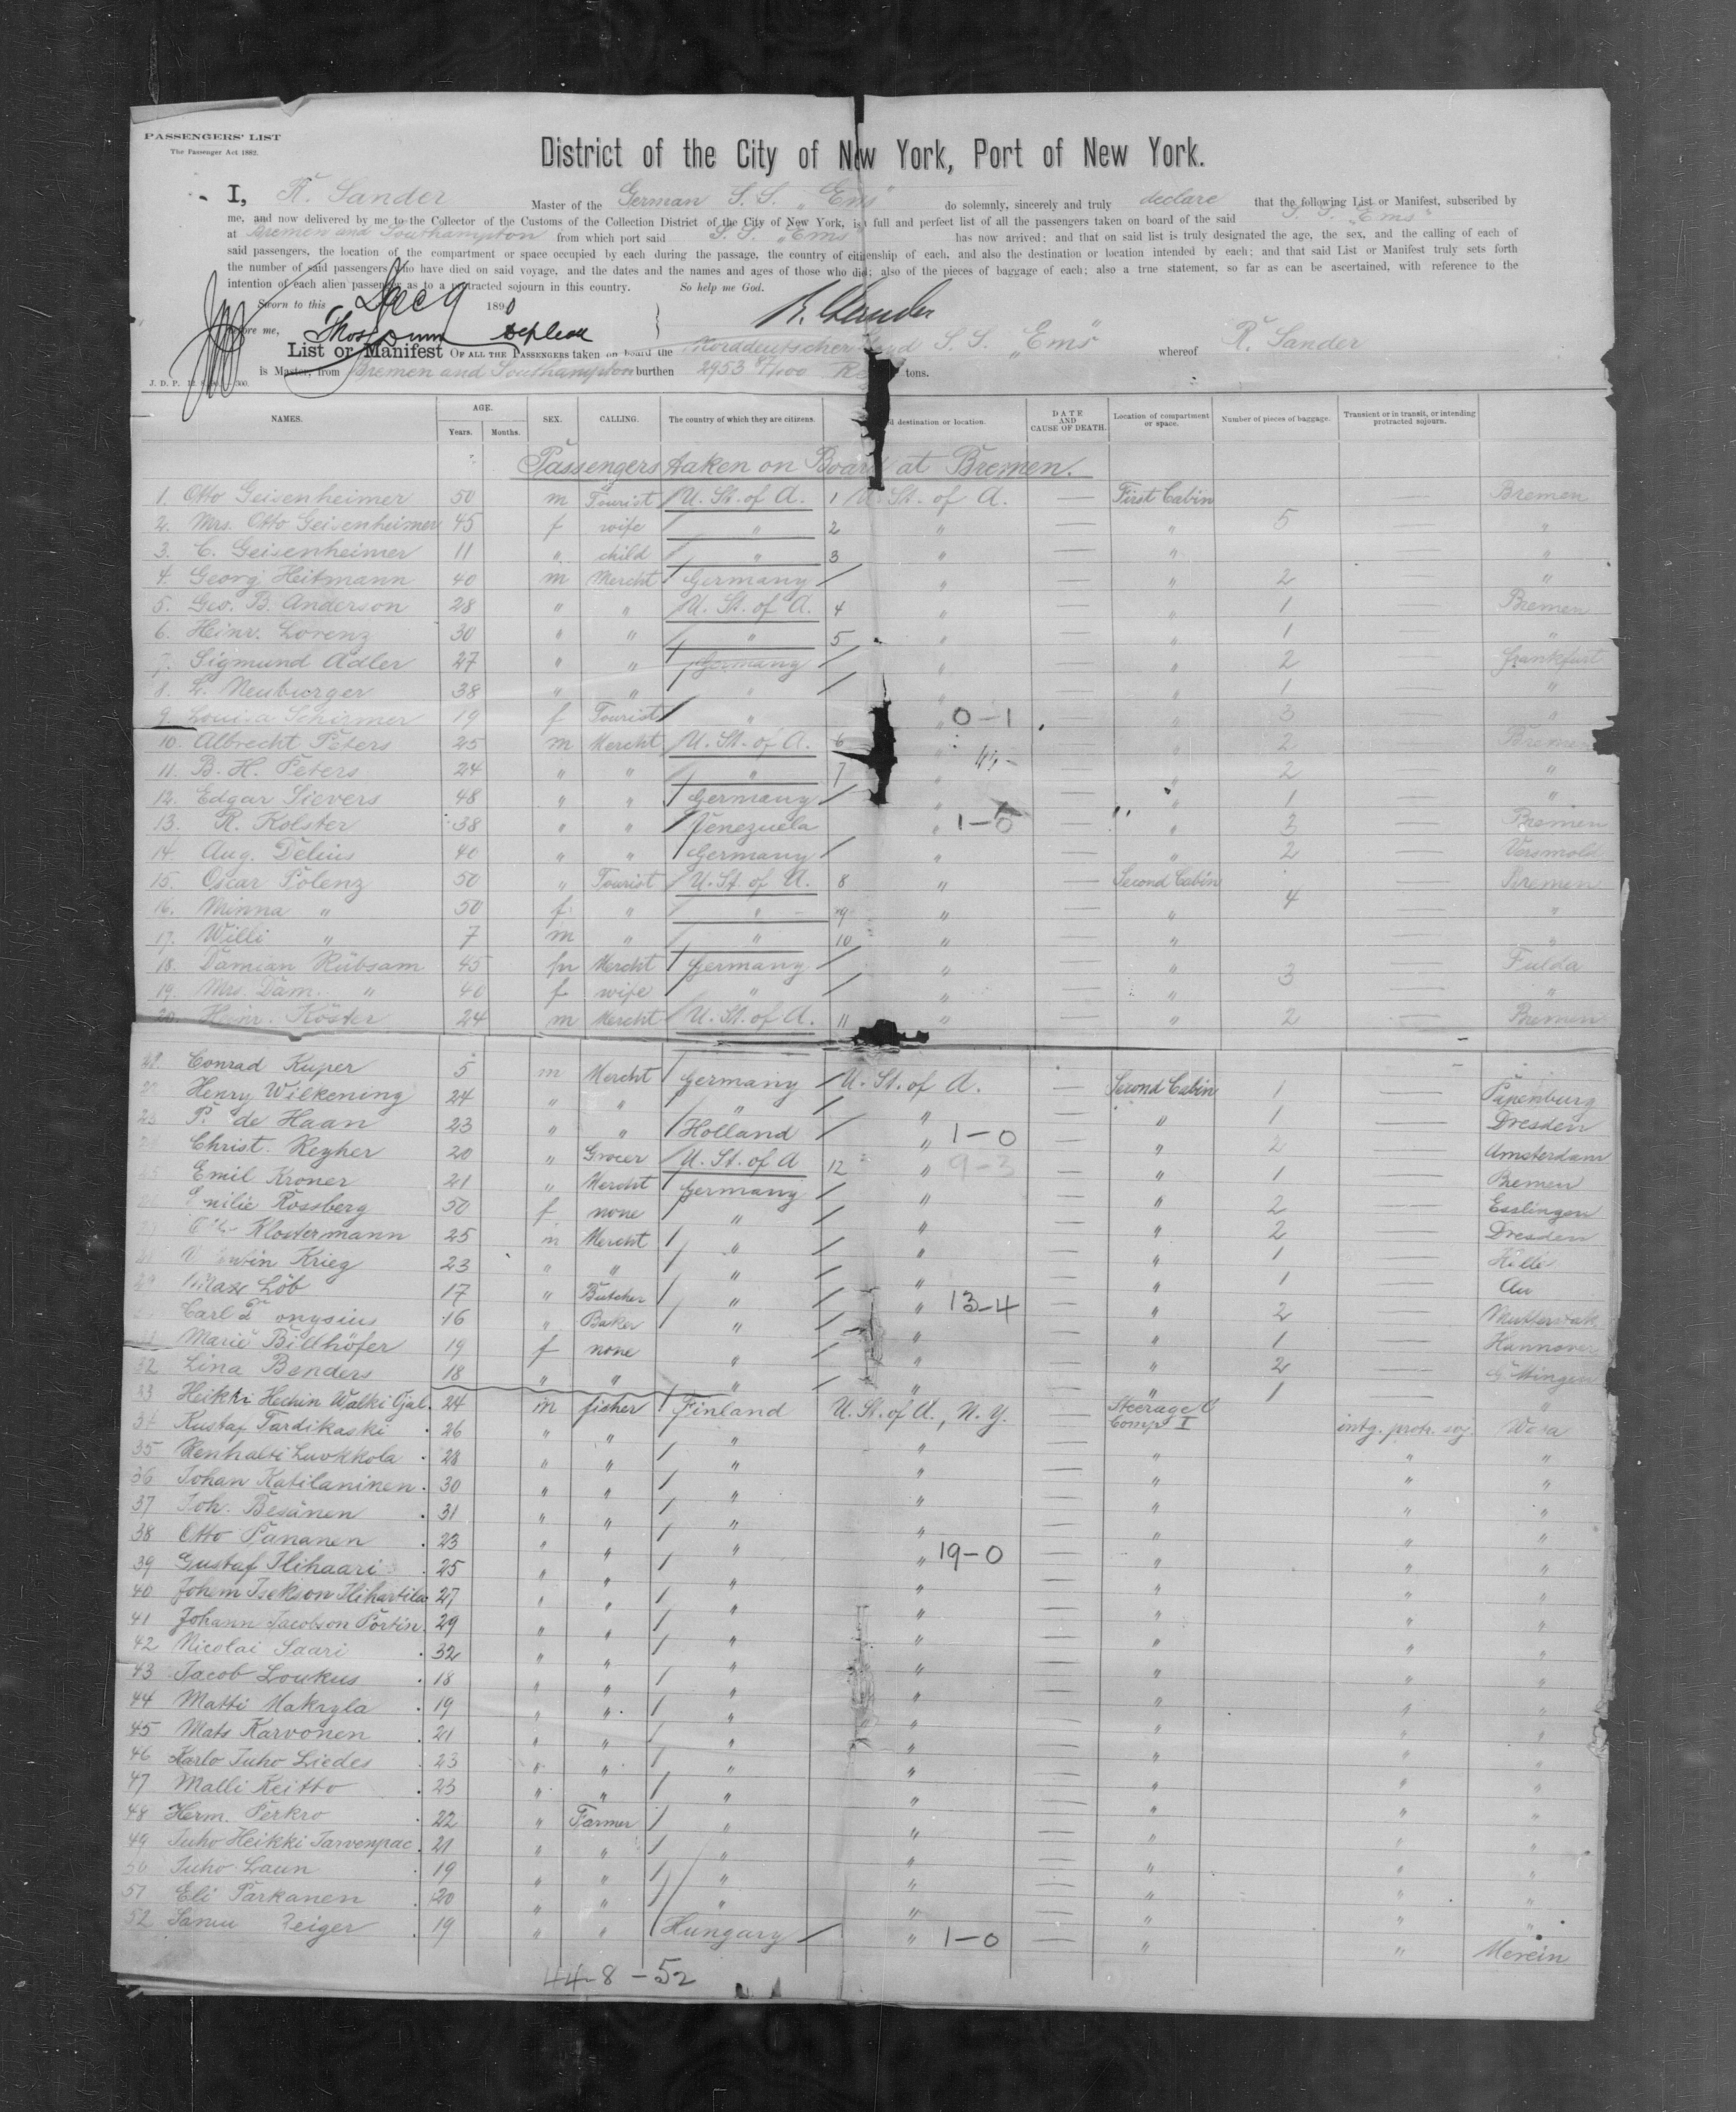 PASSENGERS' LIST
The Passenger Act 1882.
District of the City of New York, Port of New York.
I, R. Sander Master of the German S. S. „Ems" do solemnly, sincerely and truly declare that the following List or Manifest, subscribed by
me, and now delivered by me to the Collector of the Customs of the Collection District of the City of New York, is a full and perfect list of all the passengers taken on board of the said S. S. „Ems"
at Bremen and Southampton from which port said S. S. „Ems" has now arrived; and that on said list is truly designated the age, the sex, and the calling of each of
said passengers, the location of the compartment or space occupied by each during the passage, the country of citizenship of each, and also the destination or location intended by each; and that said List or Manifest truly sets forth
the number of said passengers who have died on said voyage, and the dates and the names and ages of those who died; also of the pieces of baggage of each; also a true statement, so far as can be ascertained, with reference to the
intention of each alien passenger as to a protracted sojourn in this country. So help me God.
Sworn to this Dec 9 1890
R. Sander
before me, Thos Dunn
List or Manifest OF ALL THE PASSENGERS taken on board the Norddeutscher Lloyd S. S. „Ems" whereof R. Sander
is Master, from Bremen and Southampton burthen 2953 tons.
J. D. P.
NAMES. AGE. Years. Months. SEX. CALLING. The country of which they are citizens. destination or location. DATE AND CAUSE OF DEATH. Location of compartment or space. Number of pieces of baggage. Transient or in transit, or intending protracted sojourn.
Passengers taken on Board at Bremen.
1. Otto Geisenheimer 50 m Tourist U. St. of A. 1 U. St. of A. — First Cabin — Bremen
2. Mrs. Otto Geisenheimer 45 f wife " 2 " — " 5 — "
3. C. Geisenheimer 11 " child " 3 " — " — "
4. Georg Heitmann 40 m Mercht Germany / " — " 2 — "
5. Geo. B. Anderson 28 " " U. St. of A. 4 " — " 1 — Bremen
6. Heinr. Lorenz 30 " " " 5 " — " 1 — "
7. Sigmund Adler 27 " " Germany / " — " 2 — Frankfurt
8. L. Neuburger 38 " " " / " — " 1 — "
9. Louisa Schirmer 19 f Tourist " " 0-1 " 3 — "
10. Albrecht Peters 25 m Mercht U. St. of A. 6 " — " 2 — Bremen
11. B. H. Peters 24 " " " 7 " — " 2 — "
12. Edgar Sievers 48 " " Germany / " — " 1 — "
13. R. Kolster 38 " " Venezuela " 1-0 — " 3 — Bremen
14. Aug. Delius 40 " " Germany / " — " 2 — Versmold
15. Oscar Polenz 50 " Tourist U. St. of A. 8 " — Second Cabin — Bremen
16. Minna " 50 f " " 9 " — " 4 — "
17. Willi " 7 m " " 10 " — " — "
18. Damian Rübsam 45 m Mercht Germany / " — " 3 — Fulda
19. Mrs. Dam. " 40 f wife " / " — " — "
20. Heinr. Köster 24 m Mercht U. St. of A. 11 " — " 2 — Bremen
21. Conrad Kuper 5 m Mercht Germany / U. St. of A. — Second Cabin 1 — Papenburg
22 Henry Wilkening 24 " " " / " — " 1 — Dresden
23 P. de Haan 23 " " Holland / " 1-0 — " 2 — Amsterdam
Christ. Regher 20 " Grocer U. St. of A 12 " 9-3 — " 1 — Bremen
25 Emil Kroner 21 " Mercht Germany / " — " 2 — Esslingen
Emilie Rossberg 50 f none " / " — " 2 — Dresden
Klostermann 25 m Mercht " / " — " 1 — Halle
Krieg 23 " " " / " — " 1 — Au
29 Max Löb 17 " Butcher " / " 13-4 — " 2 —
Carl Dionysius 16 " Baker " / " — " 1 — Hannover
31 Marie Billhöfer 19 f none " / " — " 2 — Göttingen
32 Lina Benders 18 " " " / " — " 1 — "
33 Heikki Hechin Walki Ojal. 24 m fisher Finland U. St. of A., N. Y. — Steerage Comp I intg. protr. soj. Wasa
34 Kustaf Tardikaski 26 " " " " — " " "
35 Renhalti Luokkola 28 " " " " — " " "
36 Johan Katilaninen 30 " " " " — " " "
37 Joh. Besänen 31 " " " " — " " "
38 Otto Pananen 23 " " " " 19-0 — " " "
39 Gustaf Ilihaari 25 " " " " — " " "
40 Johem Isekson Ilihartila 27 " " " " — " " "
41 Johann Jacobson Portin 29 " " " " — " " "
42 Nicolai Saari 32 " " " " — " " "
43 Jacob Loukus 18 " " " " — " " "
44 Matti Makryla 19 " " " " — " " "
45 Mats Karvonen 21 " " " " — " " "
46 Karlo Juho Liedes 23 " " " " — " " "
47 Malli Keitto 23 " " " " — " " "
48 Herm. Perkro 22 " Farmer " " — " " "
49 Juho Heikki Jarvenpac 21 " " " " — " " "
50 Juho Laun 19 " " " " — " " "
51 Eli Parkanen 20 " " " " — " " "
52 Zeiger 19 " " Hungary / " 1-0 — " " Merein
44-8-52